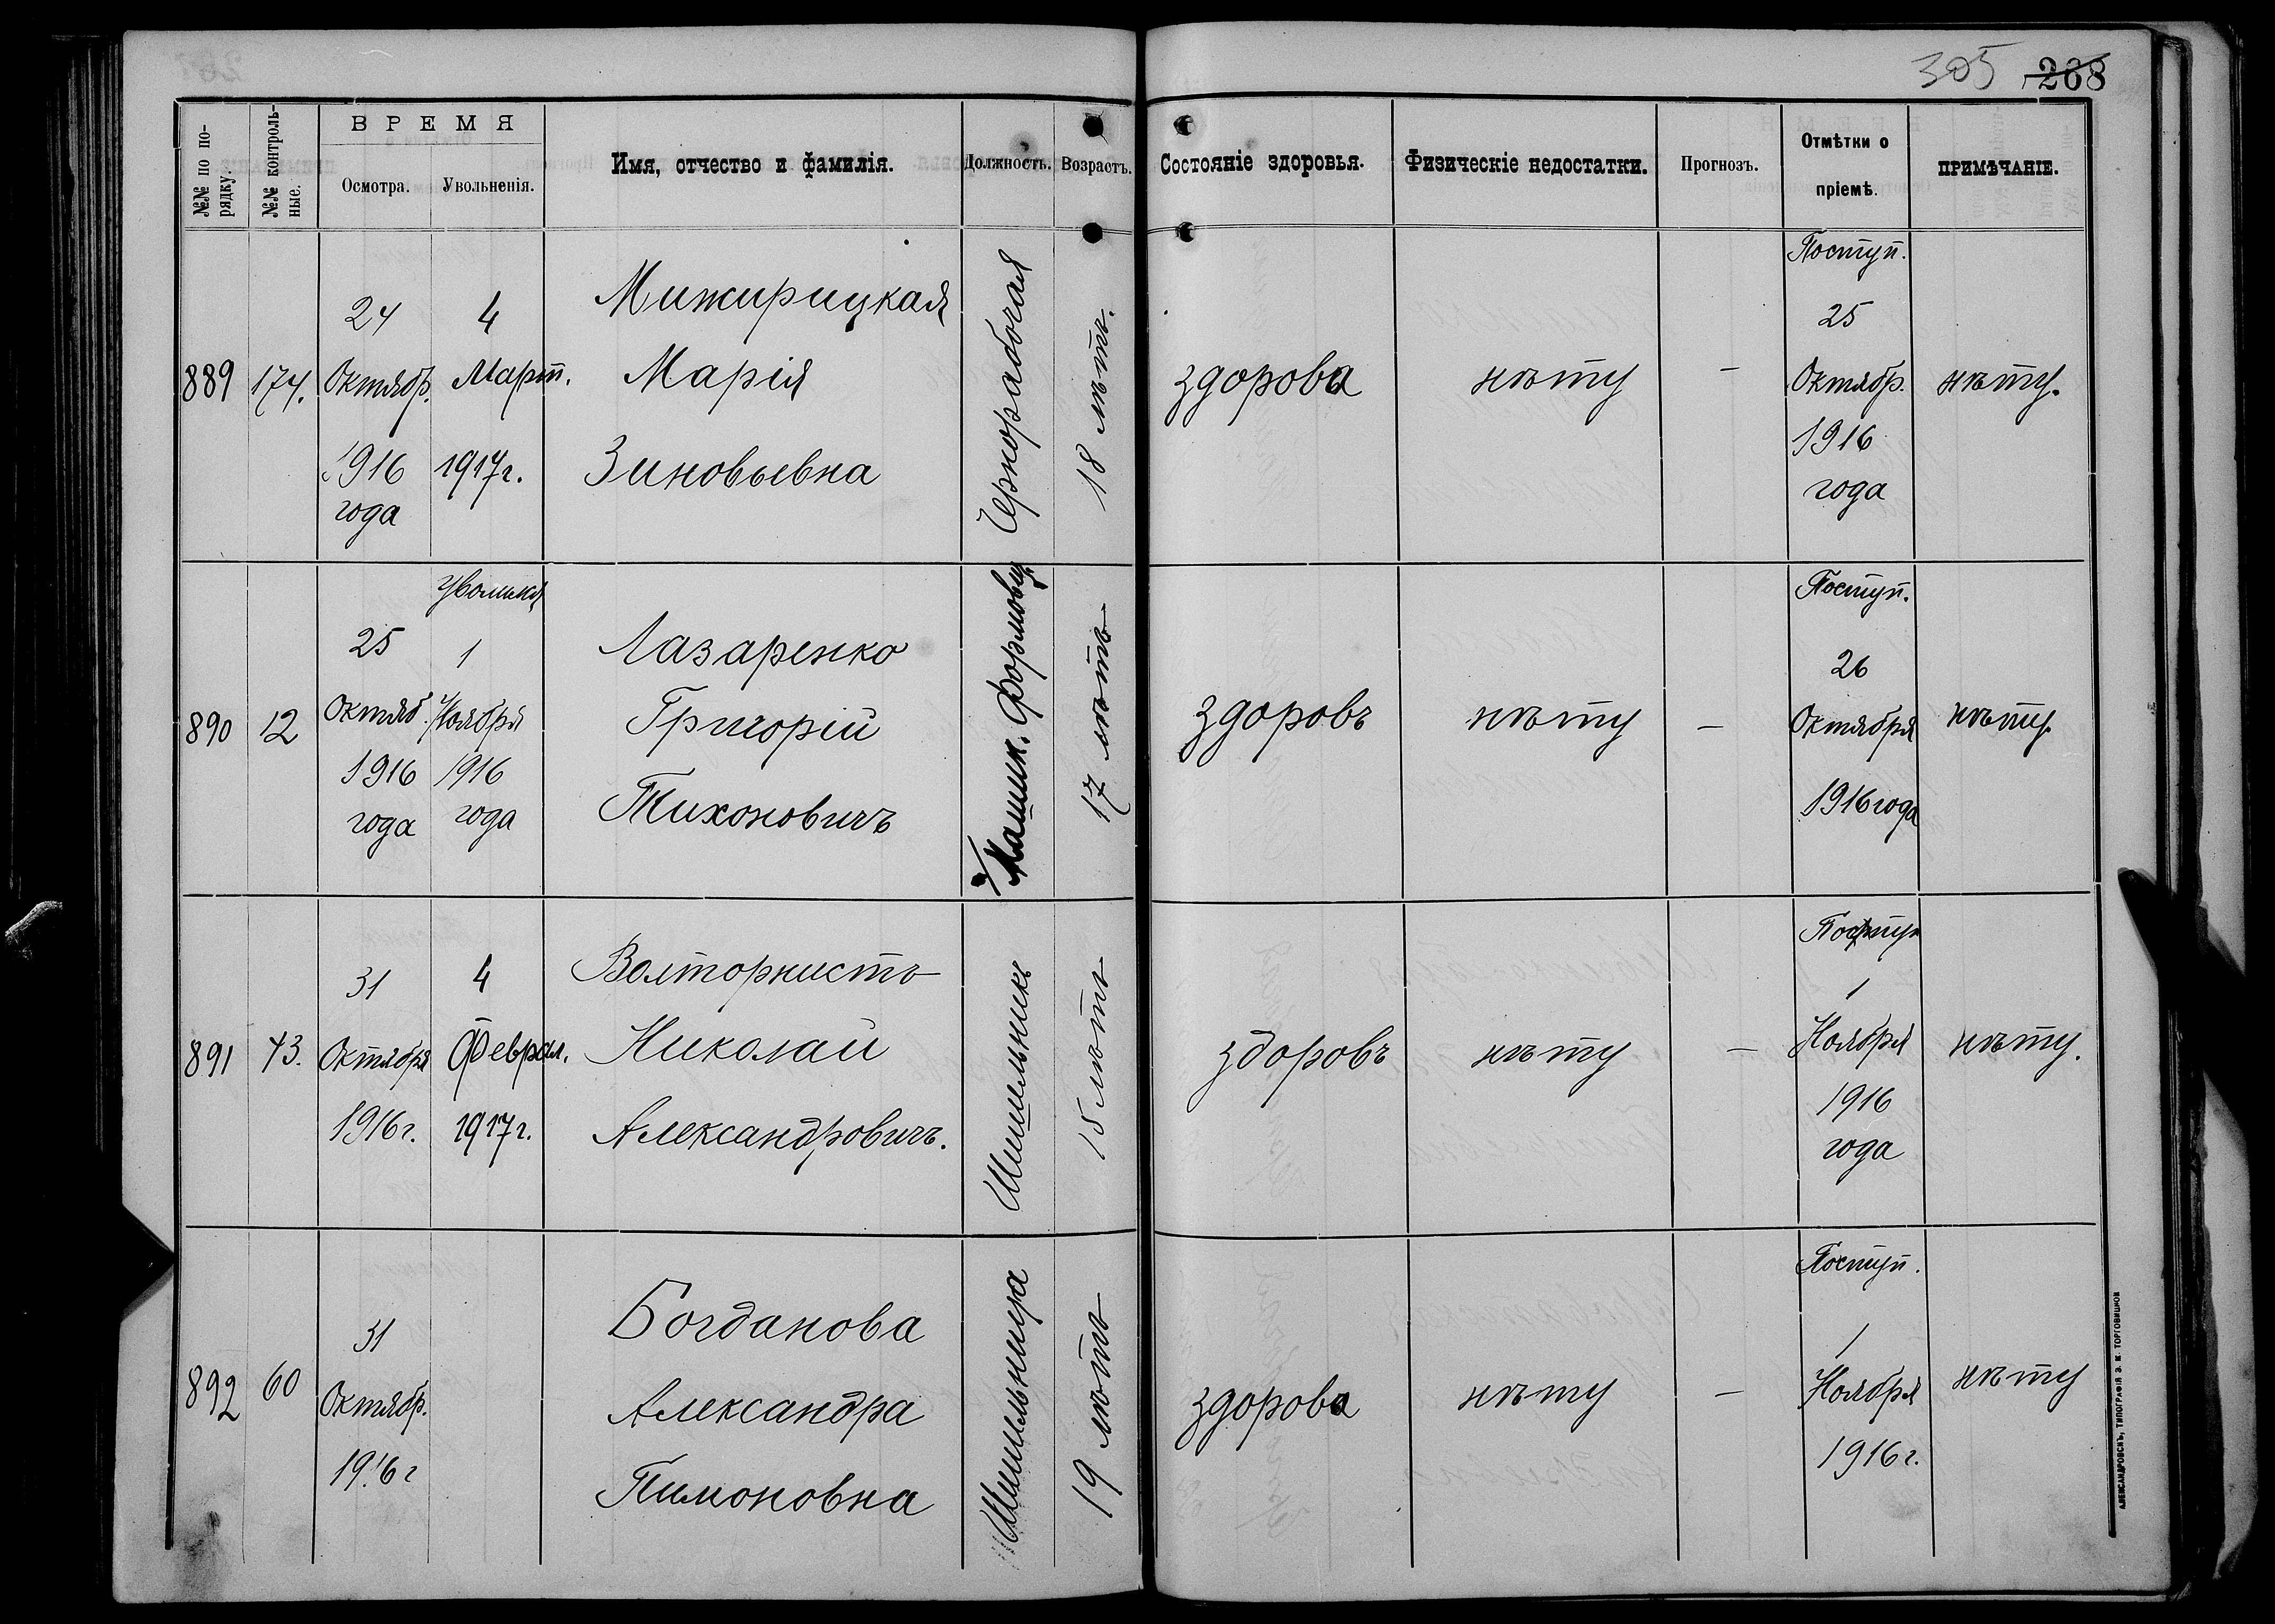 305 268
№№ по по-
рядку.
№№ контроль-
ные.
ВРЕМЯ
Осмотра.
Увольненія.
Имя, отчество и фамилія.
Должность.
Возрастъ.
Состояніе здоровья.
Физическіе недостатки.
Прогнозъ.
Отмѣтки о
пріемѣ.
ПРИМѢЧАНІЕ.
889
174.
24
Октябр.
1916
года
4
Март.
1917г.
Мижирицкая
Марія
Зиновьевна
Чернорабочая
18 лѣтъ.
здорова
нѣту
—
Поступ.
25
Октябр.
1916
года
нѣту.
890
12
25
Октяб.
1916
года
1
Ноября
1916
года
Лазаренко
Григорій
Тихоновичъ
Машин. Формовщ.
17 лѣтъ
здоровъ
нѣту
—
Поступ.
26
Октября
1916 года
нѣту.
891
43.
31
Октября
1916г.
4
Феврал.
1917г.
Волторнистъ
Николай
Александровичъ.
Шишельникъ
15 лѣтъ
здоровъ
нѣту
—
Поступ
1
Ноября
1916
года
нѣту.
892
60
31
Октябр.
1916г
Богданова
Александра
Пимоновна
Шишельница
19 лѣтъ
здорова
нѣту
—
Поступ.
1
Ноября
1916г.
нѣту
АЛЕКСАНДРОВСКЪ, ТИПОГРАФІЯ З. К. ТОРГОВИЦКОЙ